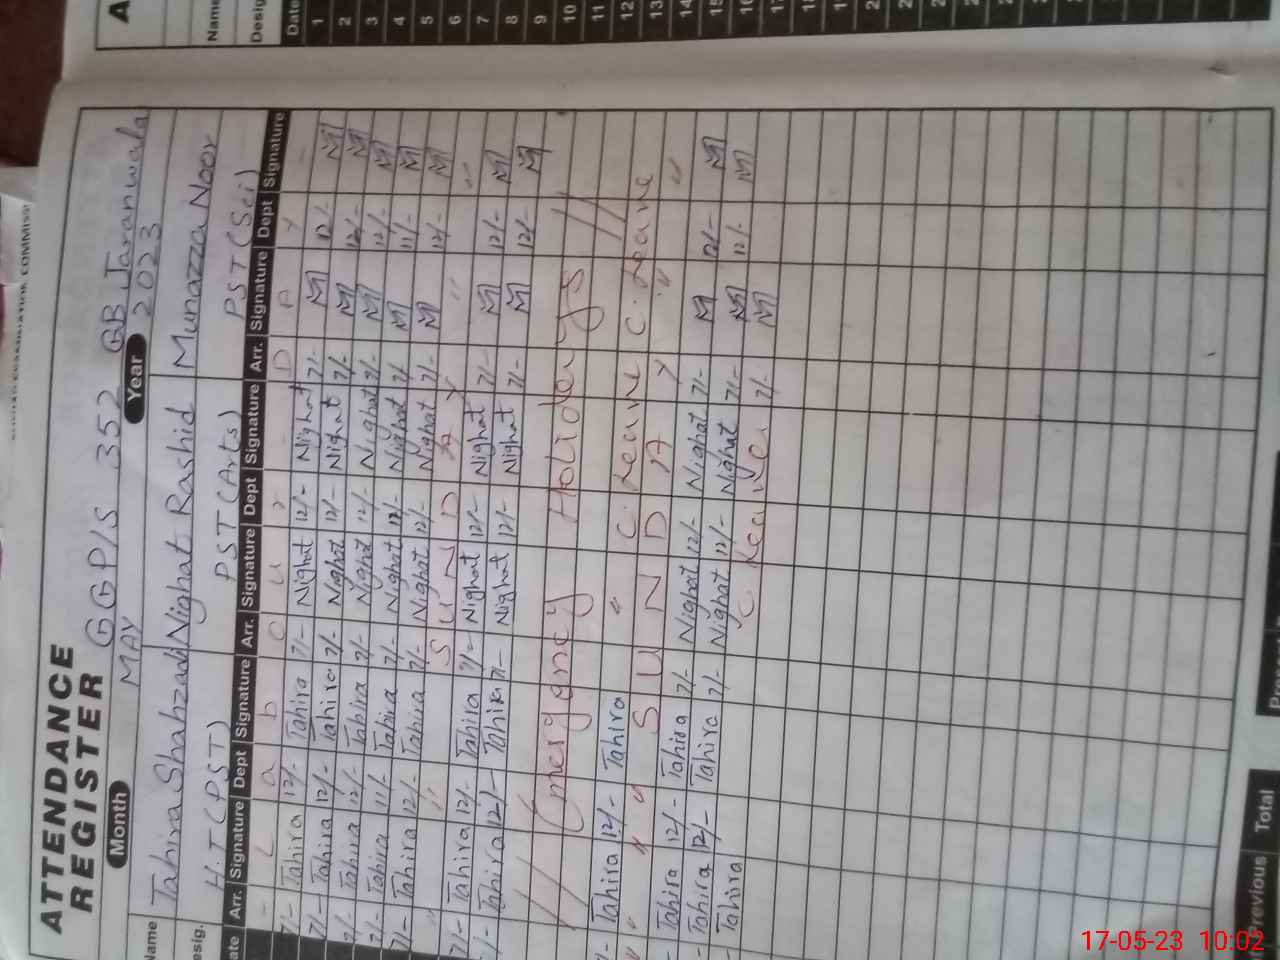 ATTENDANCE
REGISTER
GGP/S 352 GB Jaranwala
Month MAY Year 2023
Name Tahira Shahzadi Nighat Rashid Munazza Noor
Desig. H.T (PST) PST (Arts) PST (Sci)
Date Arr. Signature Dept Signature Arr. Signature Dept Signature Arr. Signature Dept Signature
L a b o u r D A Y
7/- Tahira 12/- Tahira 7/- Nighat 12/- Nighat 7/- 12/-
7/- Tahira 12/- Tahira 7/- Nighat 12/- Nighat 7/- 12/-
7/- Tahira 12/- Tahira 7/- Nighat 12/- Nighat 7/- 12/-
7/- Tahira 11/- Tahira 7/- Nighat 12/- Nighat 7/- 11/-
7/- Tahira 12/- Tahira 7/- Nighat 12/- Nighat 7/- 12/-
" " S U N D A Y " "
7/- Tahira 12/- Tahira 7/- Nighat 12/- Nighat 7/- 12/-
7/- Tahira 12/- Tahira 7/- Nighat 12/- Nighat 7/- 12/-
// Emergency Holidays //
Tahira 12/- Tahira " C. Leave C. Leave
" " " S U N D A Y " "
Tahira 12/- Tahira 7/- Nighat 12/- Nighat 7/- 12/-
Tahira 12/- Tahira 7/- Nighat 12/- Nighat 7/- 12/-
Tahira C Leave 7/-
Previous Total
A
Name
Desig
Date
1
2
3
4
5
6
7
8
9
10
11
12
13
14
15
16
17-05-23 10:02